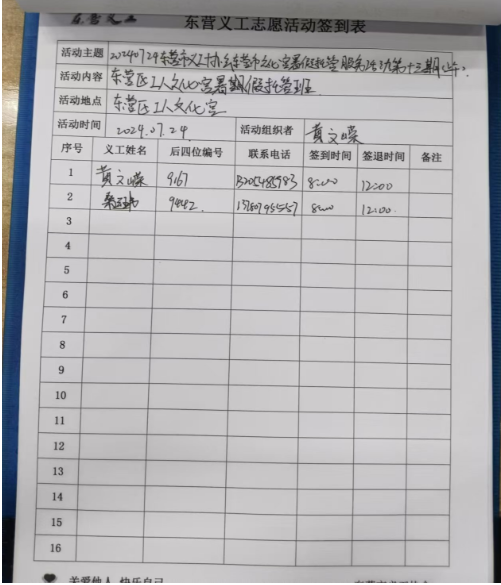 东营义工
东营义工志愿活动签到表
活动主题 20240724东营市义工协会东营市文化宫暑假托管服务活动第十三期(上午)
活动内容 东营区工人文化宫暑期假托管班
活动地点 东营区工人文化宫
活动时间 2024.07.24 活动组织者 黄文嵘
序号 义工姓名 后四位编号 联系电话 签到时间 签退时间 备注
1 黄文嵘 9167 8:00 12:00
2 9442 8:00 12:00
3
4
5
6
7
8
9
10
11
12
13
14
15
16
关爱他人 快乐自己